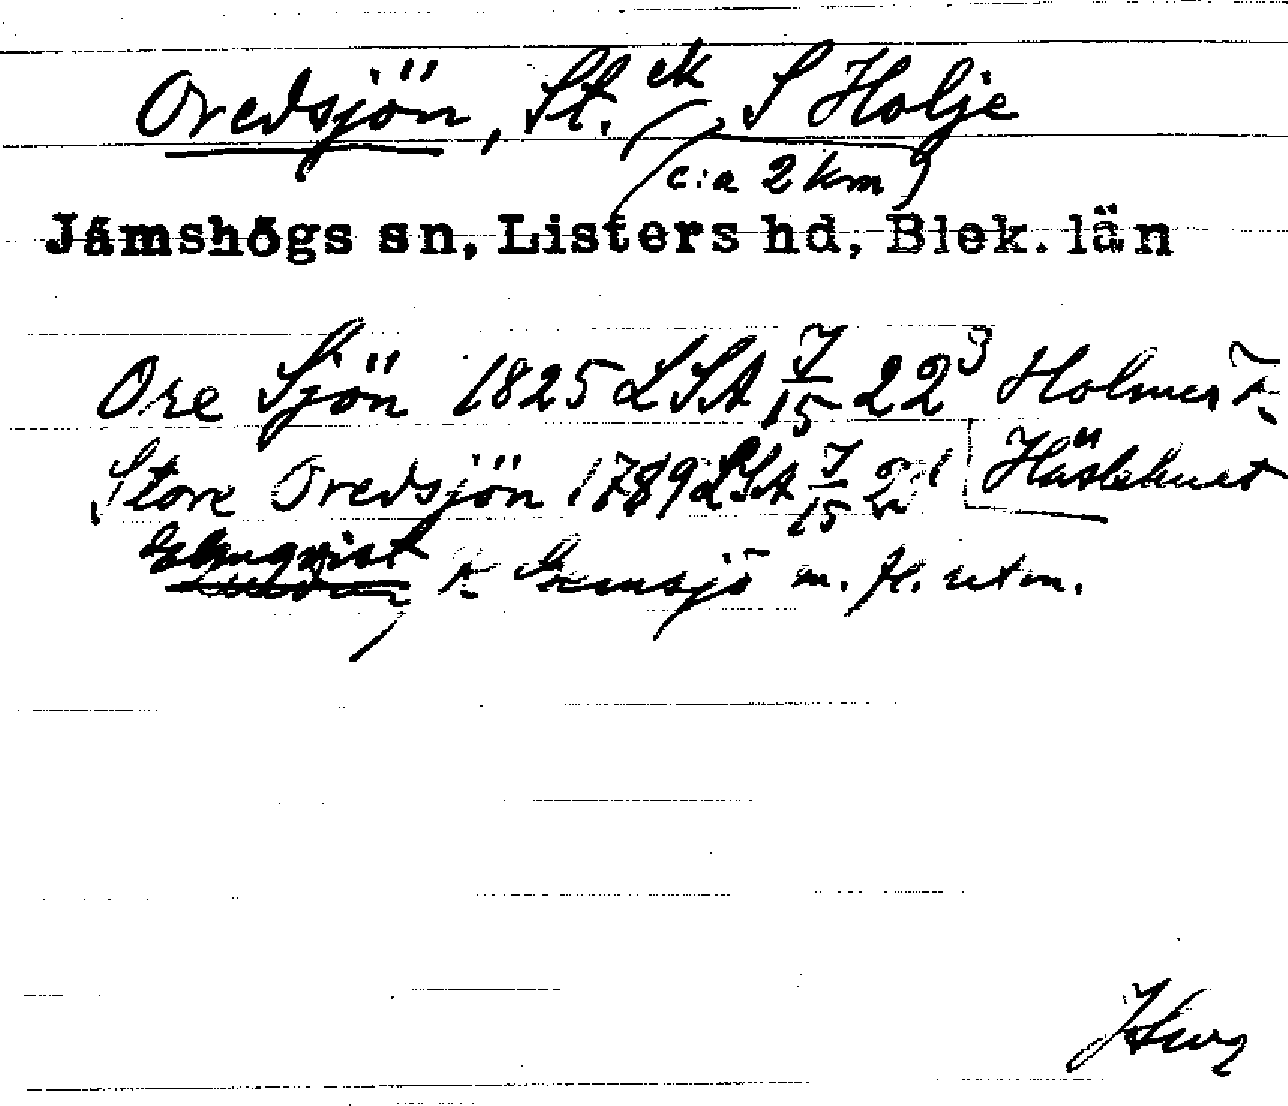 Oredsjön, St. ek S Holje
(c:a 2 km)
Jämshögs sn, Listers hd, Blek. län
Ore Sjön 1825 LSA J/15 22³ Holmer K
Store Oredsjön 1789 LSA J/15 2¹
Elmqvist K Gemsjö m. fl. utm.